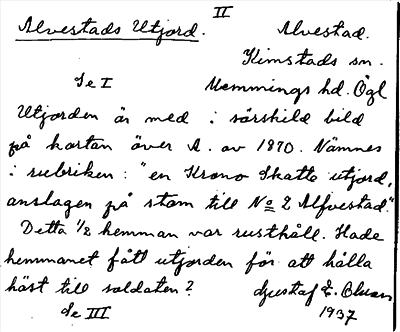 II
Alvestads Utjord. Alvestad.
Kimstads sn.
Se I Memmings hd. Ögl
Utjorden är med i särskild bild
på kartan över A. av 1870. Nämnes
i rubriken: "en Krono Skatte utjord,
anslagen på stom till No 2 Alfvestad."
Detta 1/2 hemman var rusthåll. Hade
hemmanet fått utjorden för att hålla
häst till soldaten? Gustaf E.
Se III 1937